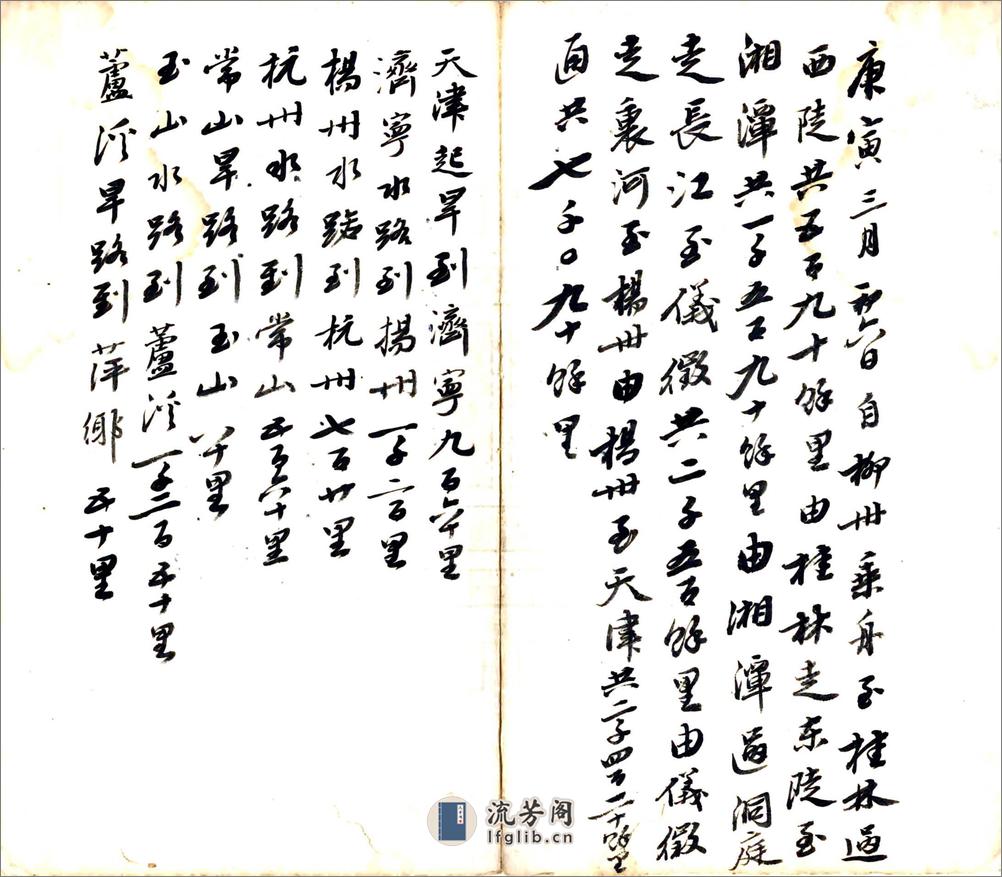 庚寅三月初六日自柳州乘舟至桂林過
西陡共五百九十餘里由桂林走东陡至
湘潭共一千五百九十餘里由湘潭過洞庭
走長江至儀徵共二千五百餘里由儀徵
走裏河至楊州由楊州至天津共二千四百二十餘里
通共七千〇九十餘里
天津起旱到濟寧九百六十里
濟寧水路到揚州一千二百里
楊州水路到杭州七百廿里
杭州水路到常山五百六十里
常山旱路到玉山八十里
玉山水路到蘆溪一千二百五十里
蘆溪旱路到萍鄉五十里
流芳阁
lfglib.cn